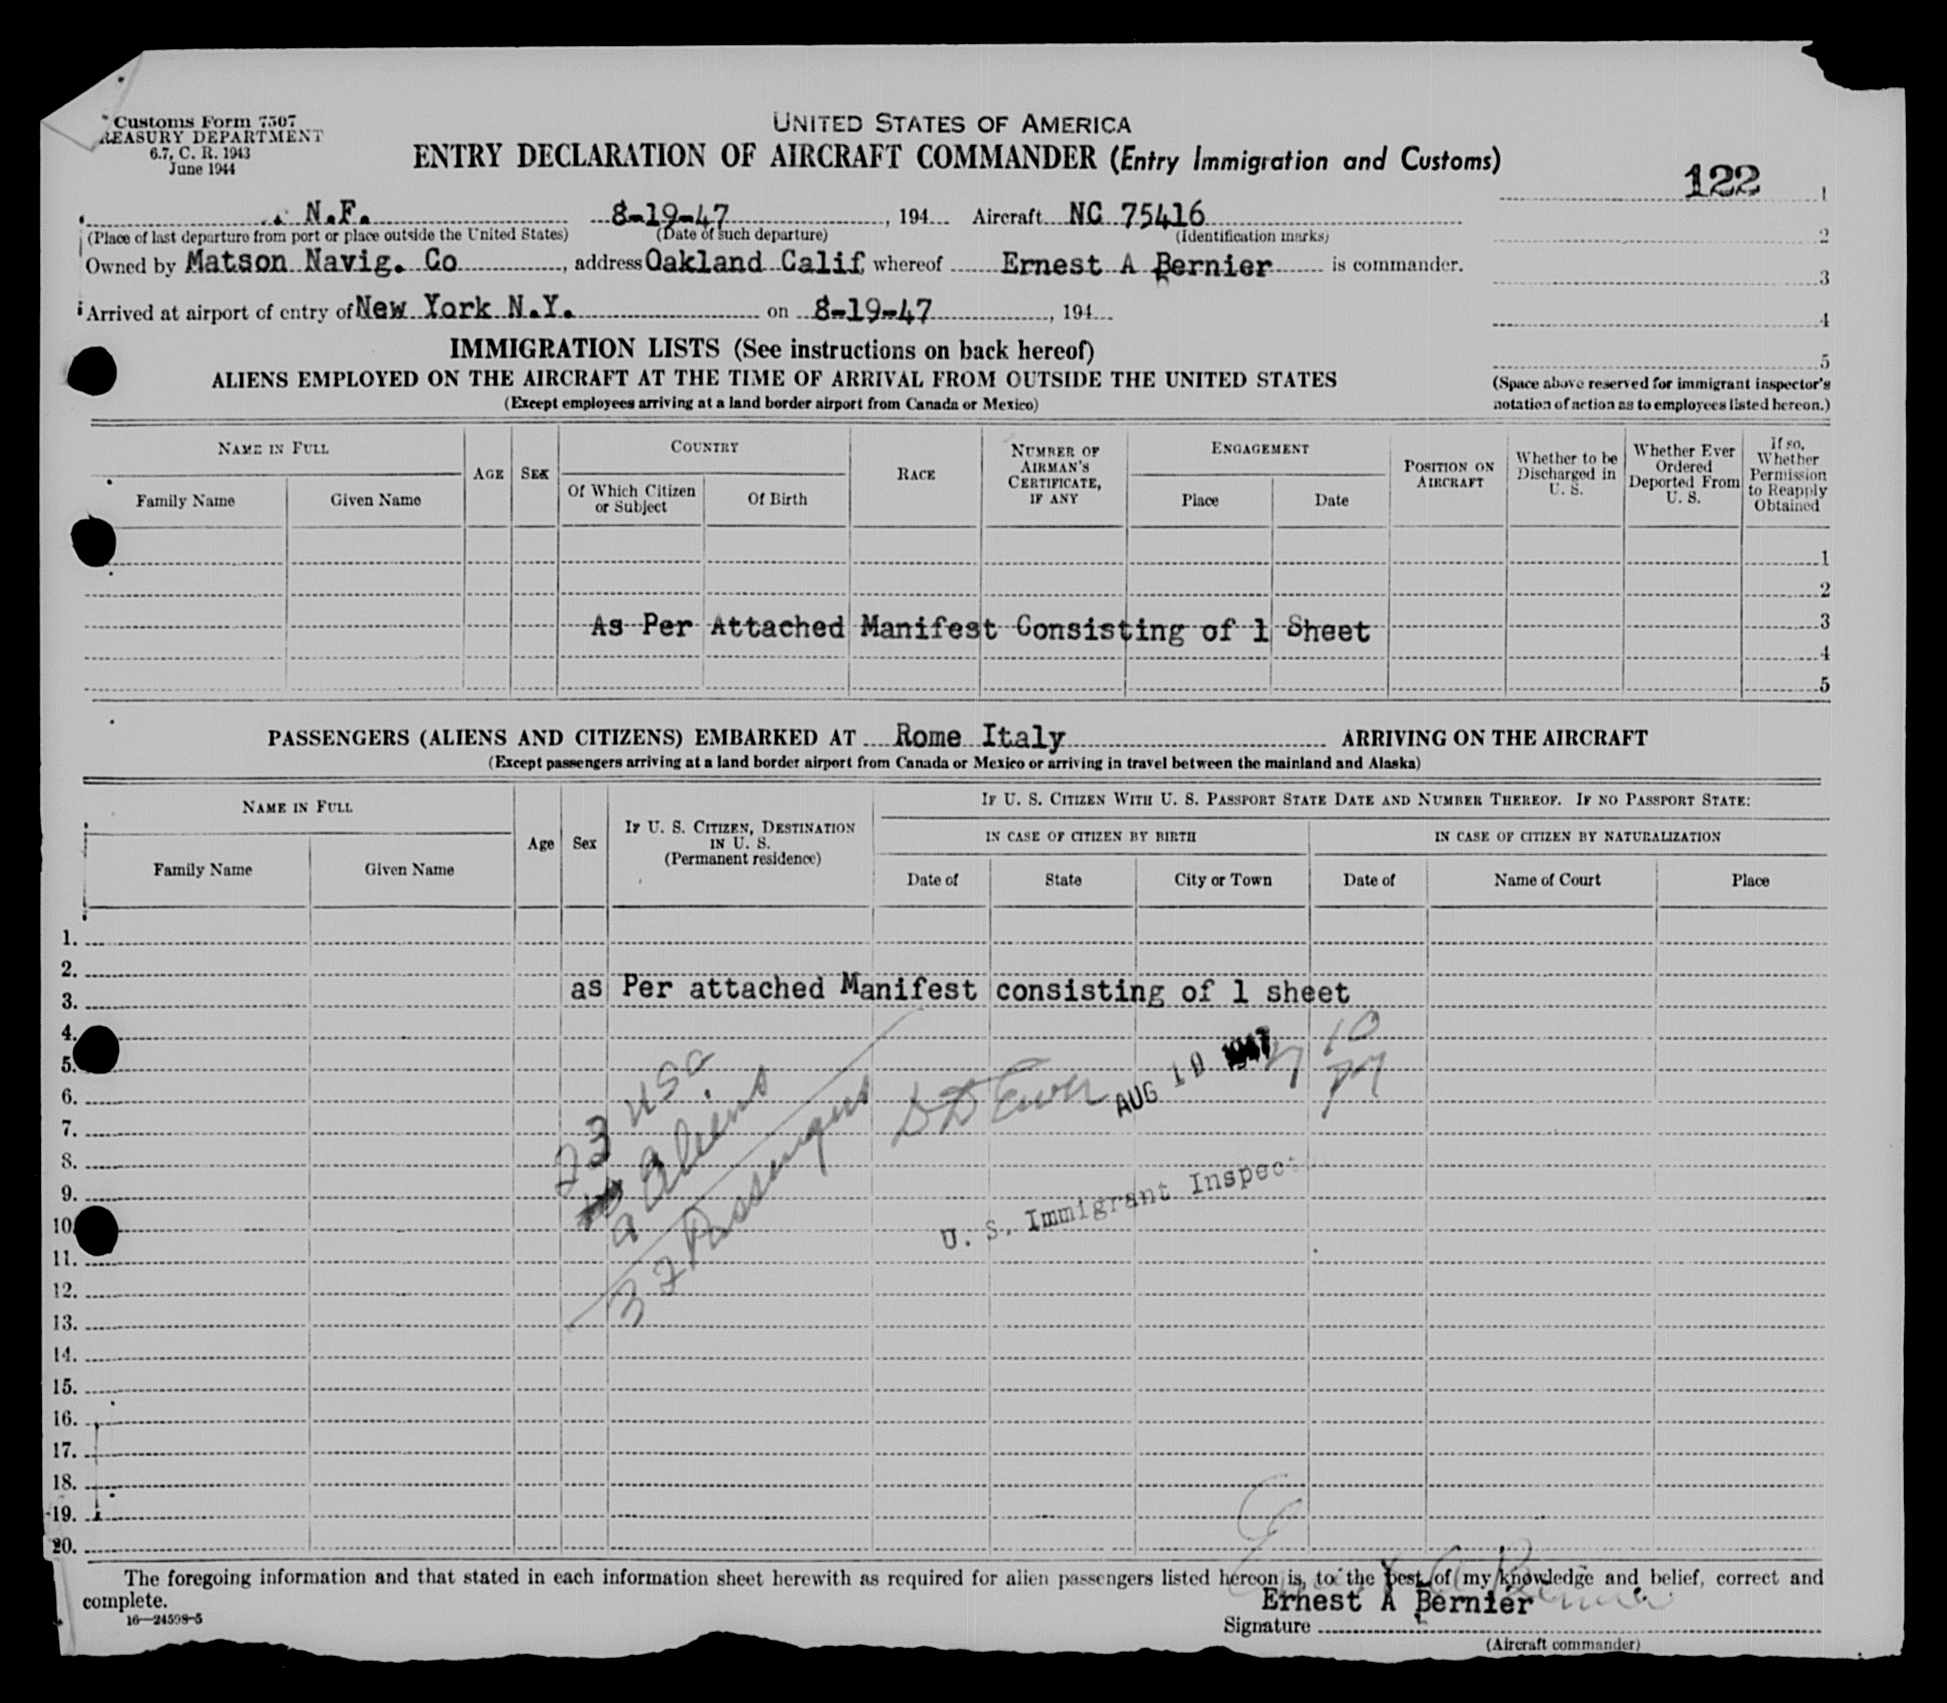 Customs Form 7507
TREASURY DEPARTMENT
6.7, C. R. 1943
June 1944
UNITED STATES OF AMERICA
ENTRY DECLARATION OF AIRCRAFT COMMANDER (Entry Immigration and Customs)
122 1
N.F. 8-19-47, 194 Aircraft NC 75416
(Place of last departure from port or place outside the United States) (Date of such departure) (Identification marks)
2
Owned by Matson Navig. Co, address Oakland Calif, whereof Ernest A Bernier is commander.
3
Arrived at airport of entry of New York N.Y. on 8-19-47, 194
4
IMMIGRATION LISTS (See instructions on back hereof)
5
ALIENS EMPLOYED ON THE AIRCRAFT AT THE TIME OF ARRIVAL FROM OUTSIDE THE UNITED STATES
(Except employees arriving at a land border airport from Canada or Mexico)
(Space above reserved for immigrant inspector's
notation of action as to employees listed hereon.)
NAME IN FULL
Family Name
Given Name
AGE
SEX
COUNTRY
Of Which Citizen
or Subject
Of Birth
RACE
NUMBER OF
AIRMAN'S
CERTIFICATE,
IF ANY
ENGAGEMENT
Place
Date
POSITION ON
AIRCRAFT
Whether to be
Discharged in
U. S.
Whether Ever
Ordered
Deported From
U. S.
If so,
Whether
Permission
to Reapply
Obtained
1
2
As Per Attached Manifest Consisting of 1 Sheet 3
4
5
PASSENGERS (ALIENS AND CITIZENS) EMBARKED AT Rome Italy ARRIVING ON THE AIRCRAFT
(Except passengers arriving at a land border airport from Canada or Mexico or arriving in travel between the mainland and Alaska)
NAME IN FULL
Family Name
Given Name
Age
Sex
IF U. S. CITIZEN, DESTINATION
IN U. S.
(Permanent residence)
IF U. S. CITIZEN WITH U. S. PASSPORT STATE DATE AND NUMBER THEREOF. IF NO PASSPORT STATE:
IN CASE OF CITIZEN BY BIRTH
IN CASE OF CITIZEN BY NATURALIZATION
Date of
State
City or Town
Date of
Name of Court
Place
1.
2.
as Per attached Manifest consisting of 1 sheet
3.
4.
5.
6.
7.
8.
9.
10.
11.
12.
13.
14.
15.
16.
17.
18.
19.
20.
23 USC
9 Aliens
32 Passengers
AUG 19 1947
U. S. Immigrant Inspec
The foregoing information and that stated in each information sheet herewith as required for alien passengers listed hereon is, to the best of my knowledge and belief, correct and
complete.
16—24598-5
Ernest A Bernier
Signature
(Aircraft commander)